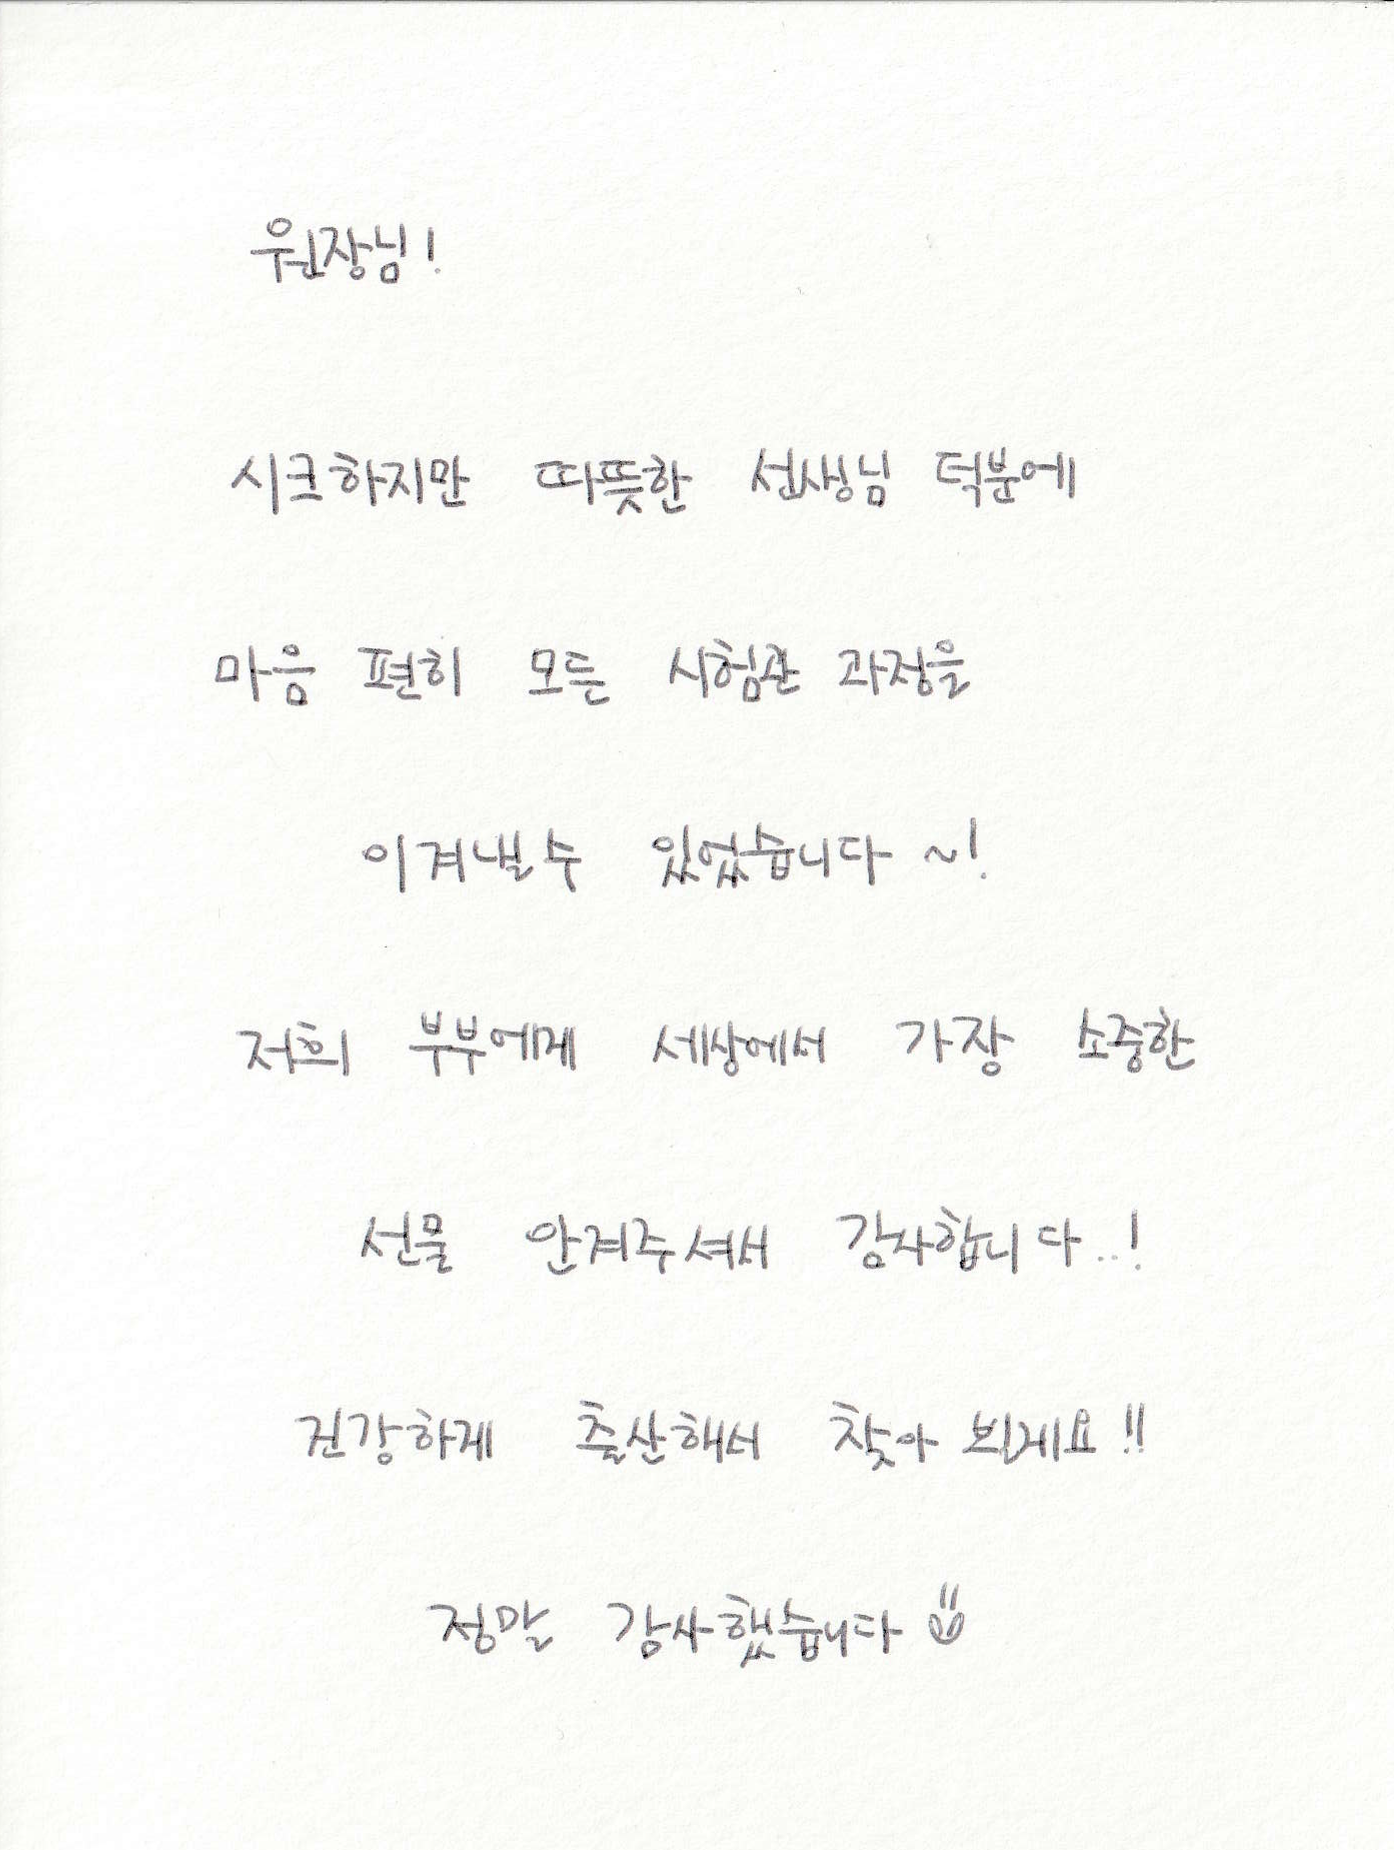 원장님!
시크하지만 따뜻한 선생님 덕분에
마음 편히 모든 시험관 과정을
이겨낼 수 있었습니다 ~!
저희 부부에게 세상에서 가장 소중한
선물 안겨주셔서 감사합니다..!
건강하게 출산해서 찾아 뵐게요!!
정말 감사했습니다